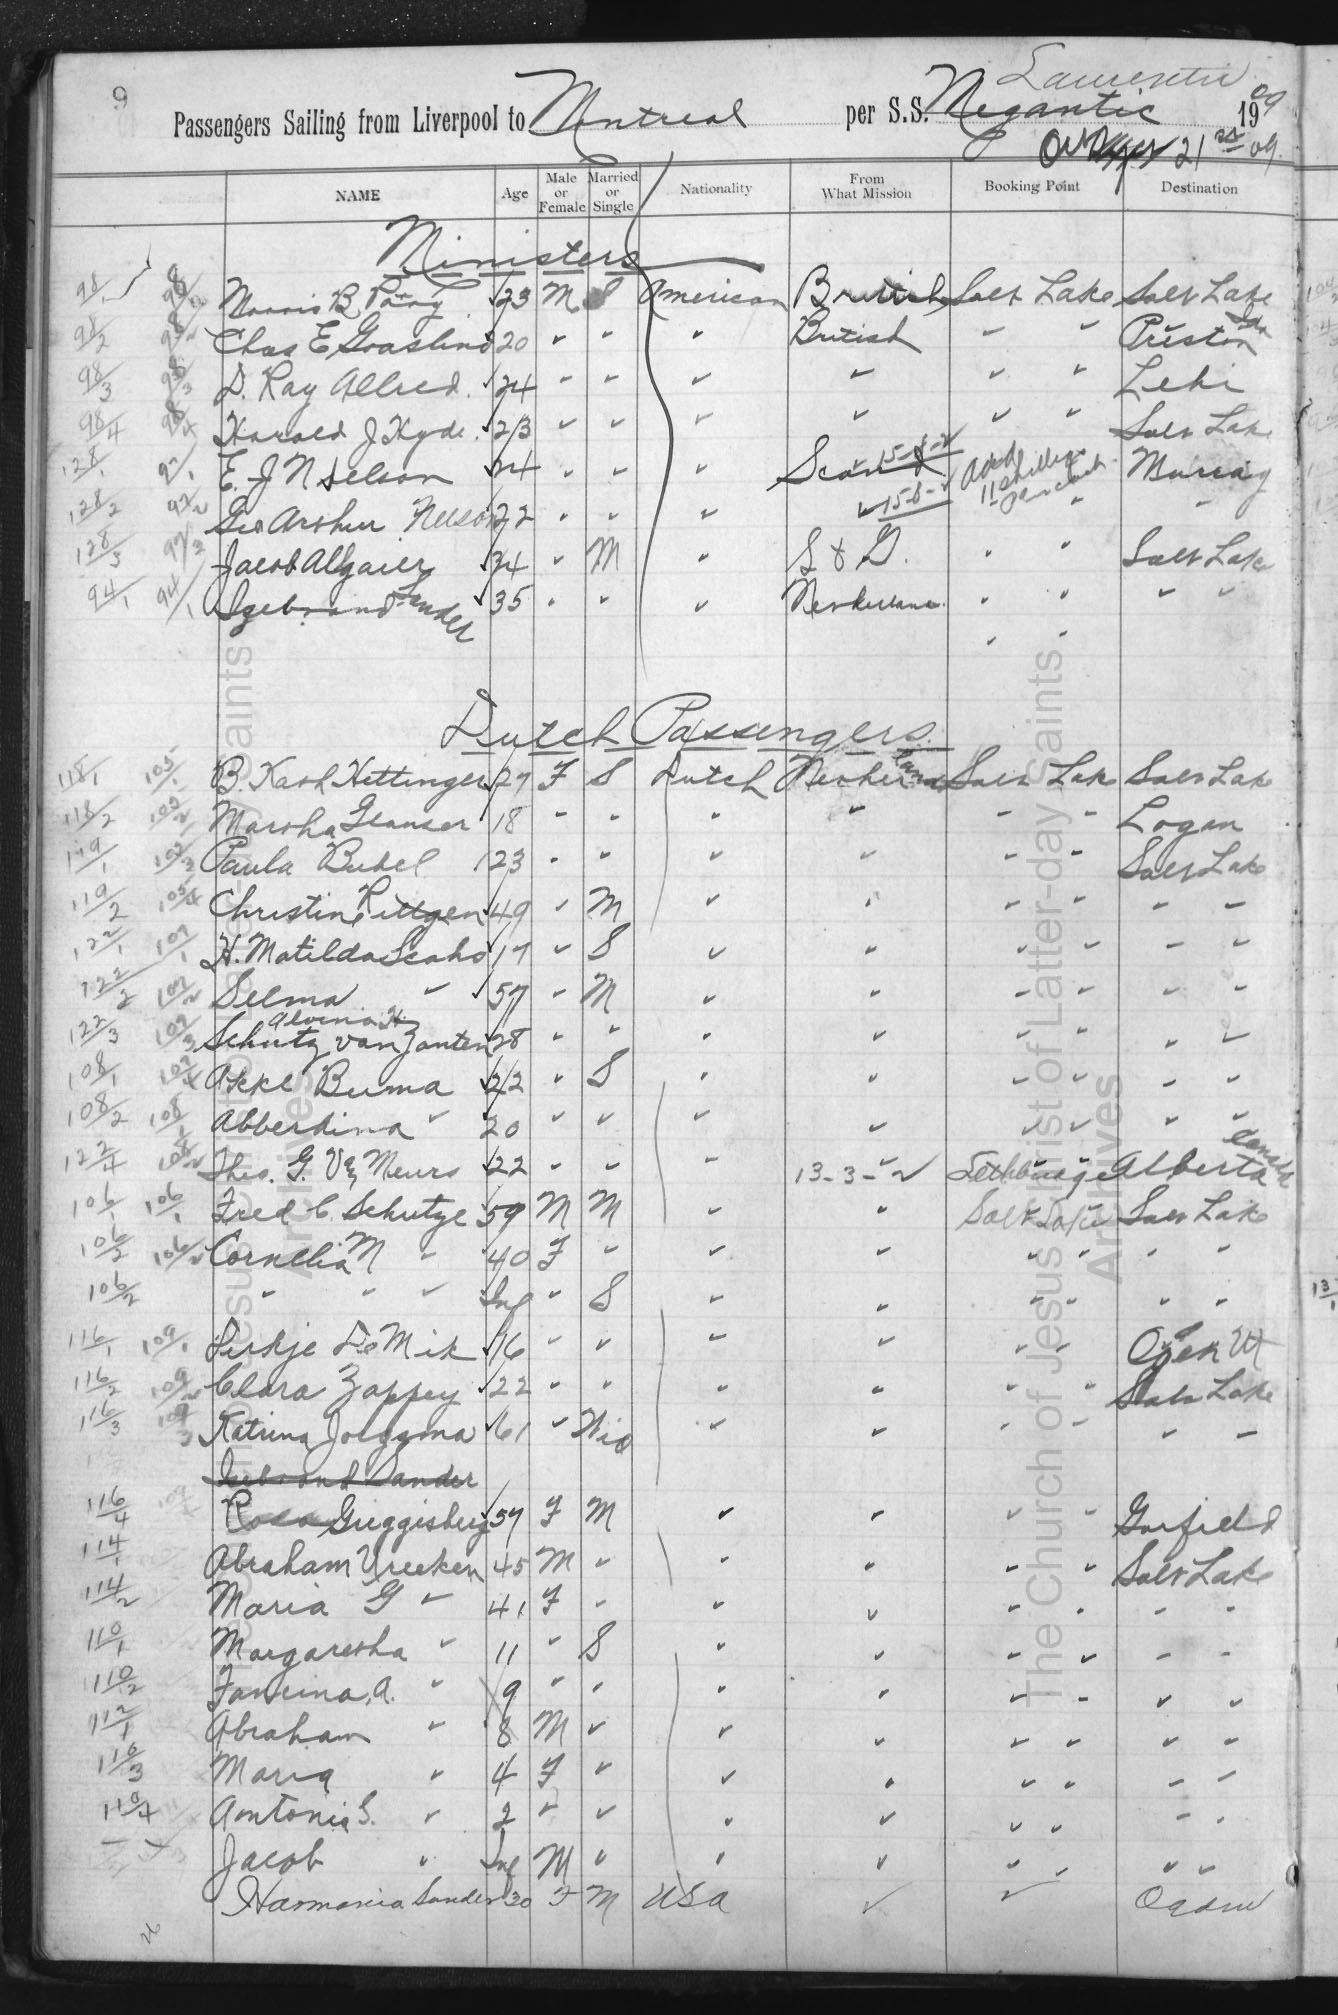 9
Laurentic
Passengers Sailing from Liverpool to Montreal per S.S. Megantic 1909
Oct 21st 09.
NAME Age Male or Female Married or Single Nationality From What Mission Booking Point Destination
Ministers
98/1 98/1 Morris B. Parry 23 M S American British Salt Lake Salt Lake
98/2 98/2 Chas E Goaslind 20 " " " British " " Preston Ida
98/3 98/3 D. Ray Allred. 24 " " " " " " Lehi
98/4 98/4 Harold J Hyde. 23 " " " " " " Salt Lake
128/1 97/1 E. J Nielson 24 " " " Scand. 15-8-2 Add 11 shillings Murray
128/2 97/2 Geo Arthur Nelson 22 " " " 15-8- " "
128/3 97/3 Jacob Allgaier 24 " M " S & G. " " Salt Lake
94/1 94/1 Sander 35 " " " Netherland " " " "
" "
Dutch Passengers.
118/1 105/1 B. Kath Hettinger 27 F S Dutch Netherland Salt Lake Salt Lake
118/2 105/2 Martha Glauser 18 " " " " " " Logan
119/1 105/3 Paula Bubel 23 " " " " " " Salt Lake
119/2 105/4 Christin Rittgen 49 " M " " " " " "
122/1 107/1 H. Matilda 17 " S " " " " " "
122/2 107/2 Selma " 57 " M " " " " " "
Alvina H
122/3 107/3 Schutz van Zanten 28 " " " " " "
108/1 107/4 Akke Buma 22 " S " " " " " "
108/2 108/1 Abberdina " 20 " " " " " " " "
122/4 108/2 Theo. G. Vn Meurs 22 " " " 13-3-2 Lethbridge Alberta Canada
106/1 106/1 Fred C. Schutze 59 M M " " Salt Lake Salt Lake
106/2 106/2 Cornelia M " 40 F " " " " " " "
106/2 " " " Inf " S " " " " " "
116/1 109/1 De Mik 16 " " " " " " Ogden Ut
116/2 109/2 Clara Zappey 22 " " " " " " Salt Lake
116/3 109/3 Katrina 61 " Wid " " " " " "
Sander
116/4 109/4 Rosa Griggisberg 57 F M " " " " Garfield
114/1 Abraham Vreeken 45 M " " " " " Salt Lake
114/2 Maria G " 41 F " " " " " " "
110/1 Margaretha " 11 " S " " " " " "
110/2 A. " 9 " " " " " " " "
112/1 Abraham " 8 M " " " " " " "
110/3 Maria " 4 F " " " " " " "
110/4 Antonia G. " 2 " " " " " " " "
Jacob " Inf M " " " " " " "
Harmania Sander 30 F M USA ✓ ✓ Ogden
26
The Church of Jesus Christ of Latter-day Saints.
Archives